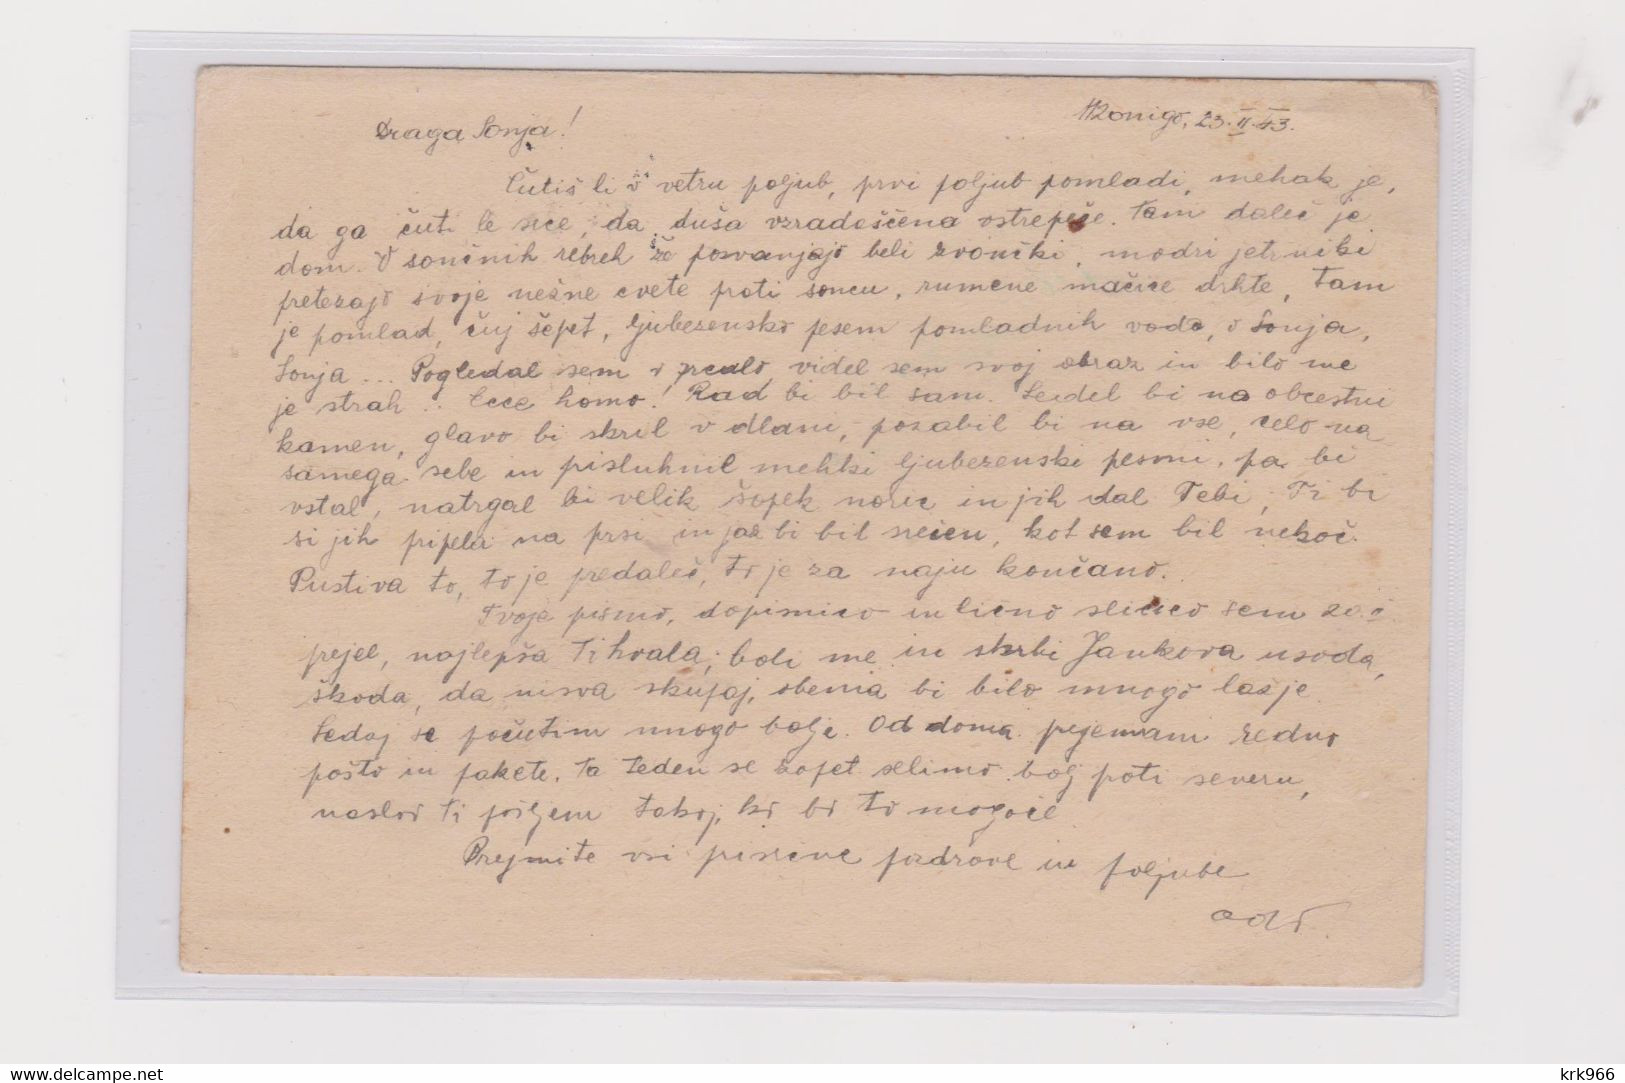 Monigo, 23.II.43.
Draga Sonja!
Čutiš li v vetru poljub, prvi poljub pomladi, mehak je,
da ga čuti le srce, da duša vzradoščena vstrepeče. Tam daleč je
dom. V sončnih rebreh že pozvanjajo beli zvončki, modri jetrniki
pretezajo svoje nežne cvete proti soncu, rumene mačice drhte, Tam
je pomlad, čuj šepet, ljubezensko pesem pomladnih voda, o Sonja,
Sonja ... Pogledal sem v zrcalo videl sem svoj obraz in bilo me
je strah .. Ecce homo! Rad bi bil sam. Sedel bi na obcestni
kamen, glavo bi skril v dlani, pozabil bi na vse, celo na
samega sebe in prisluhnil mehki ljubezenski pesmi, pa bi
vstal, natrgal bi velik šopek noric in jih dal Tebi, Ti bi
si jih pripela na prsi in jaz bi bil srečen, kot sem bil nekoč.
Pustiva to, to je predaleč, to je za naju končano.
Tvoje pismo, dopisnico in lično sličico sem 20.
prejel, najlepša Ti hvala; boli me in skrbi Jankova usoda,
škoda, da nisva skupaj, obema bi bilo mnogo lažje.
Sedaj se počutim mnogo bolje. Od doma prejemam redno
pošto in pakete. Ta teden se zopet selimo bolj proti severu,
naslov Ti pošljem takoj, ko bo to mogoče
Prejmite vsi prisrčne pozdrave in poljube
krk966